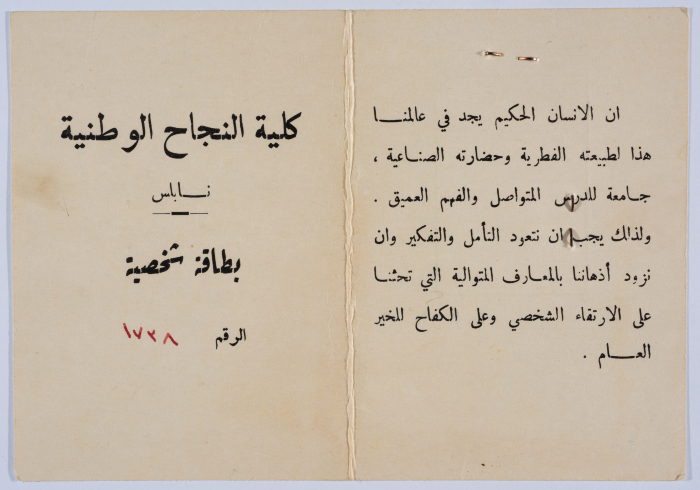 ان الانسان الحكيم يجد في عالمنا
هذا لطبيعته الفطرية وحضارته الصناعية ،
جامعة للدرس المتواصل والفهم العميق .
ولذلك يجب ان نتعود التأمل والتفكير وان
نزود أذهاننا بالمعارف المتوالية التي تحثنا
على الارتقاء الشخصي وعلى الكفاح للخير
العام .
كلية النجاح الوطنية
نابلس
بطاقة شخصية
الرقم ١٧٣٨